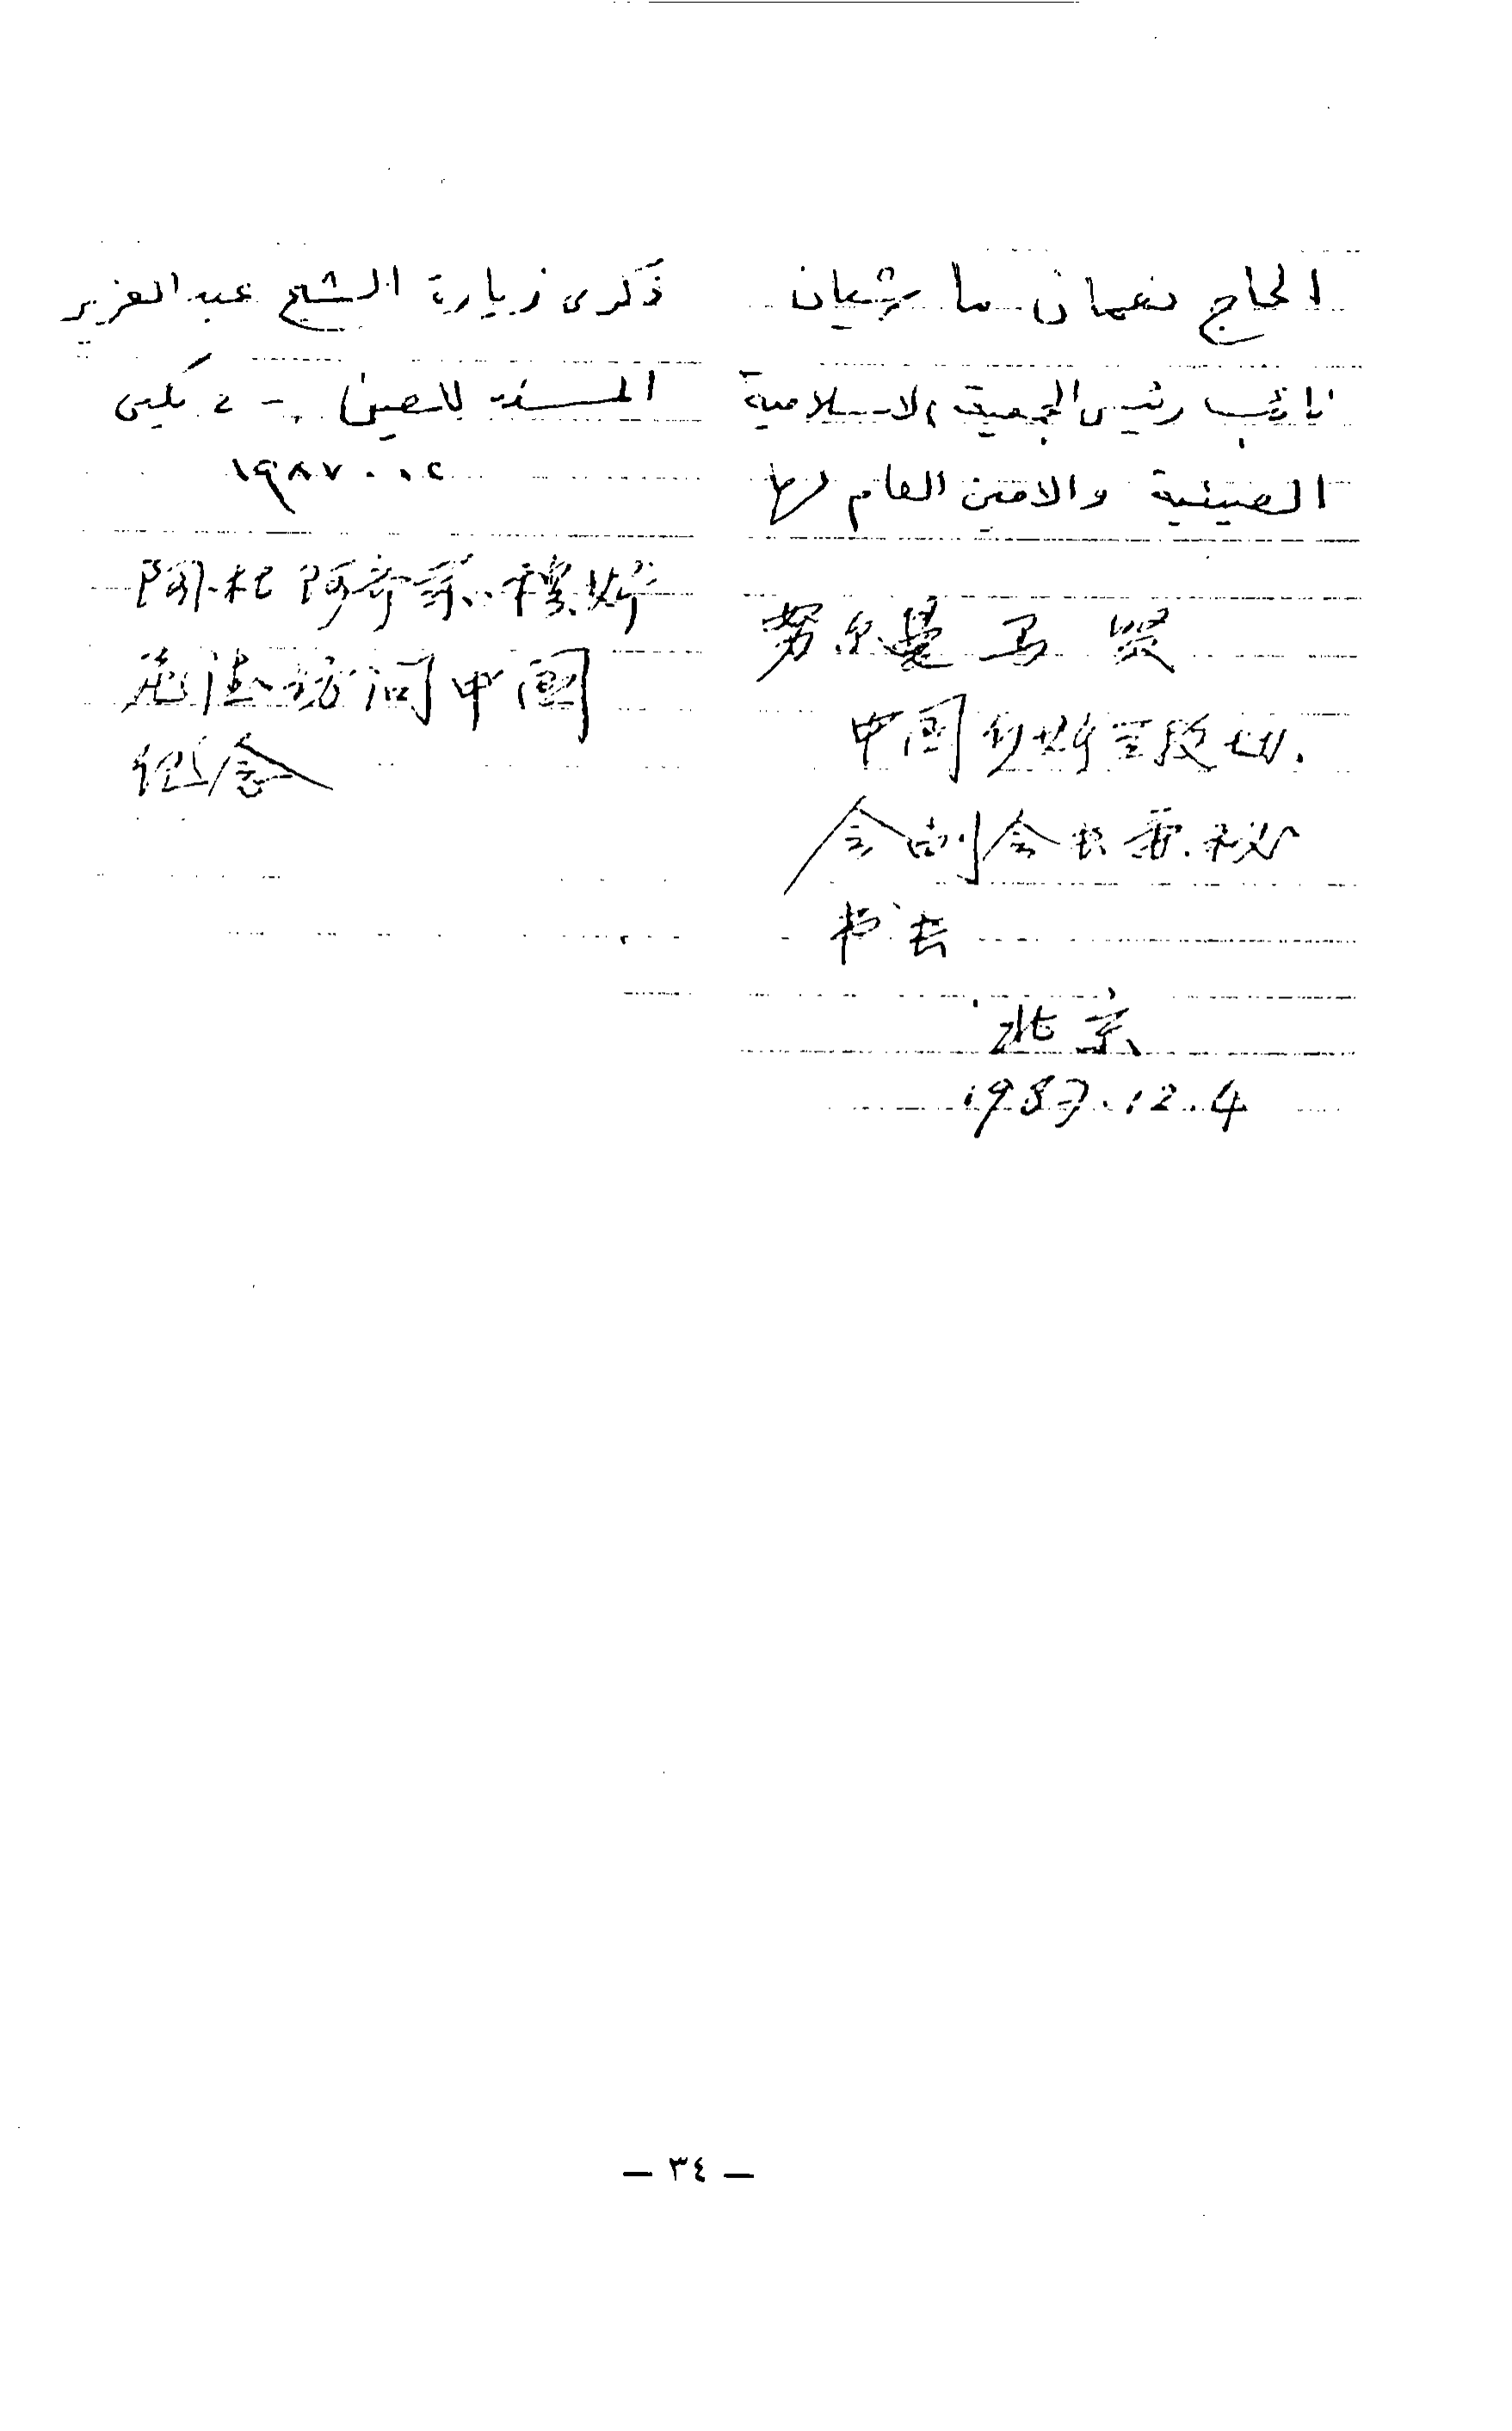 الحاج نعمان ما شيان
نائب رئيس الجمعية الاسلامية
الصينية والامين العام لها
努尔曼 马贤
中国伊斯兰教协
会副会长兼秘
书长
北京
1987.12.4
ذكرى زيارة الشيخ عبد العزيز
المسند للصين - بكين
١٩٨٧.١٢
阿卜杜阿齐兹·穆斯
访问中国
纪念
— ٣٤ —